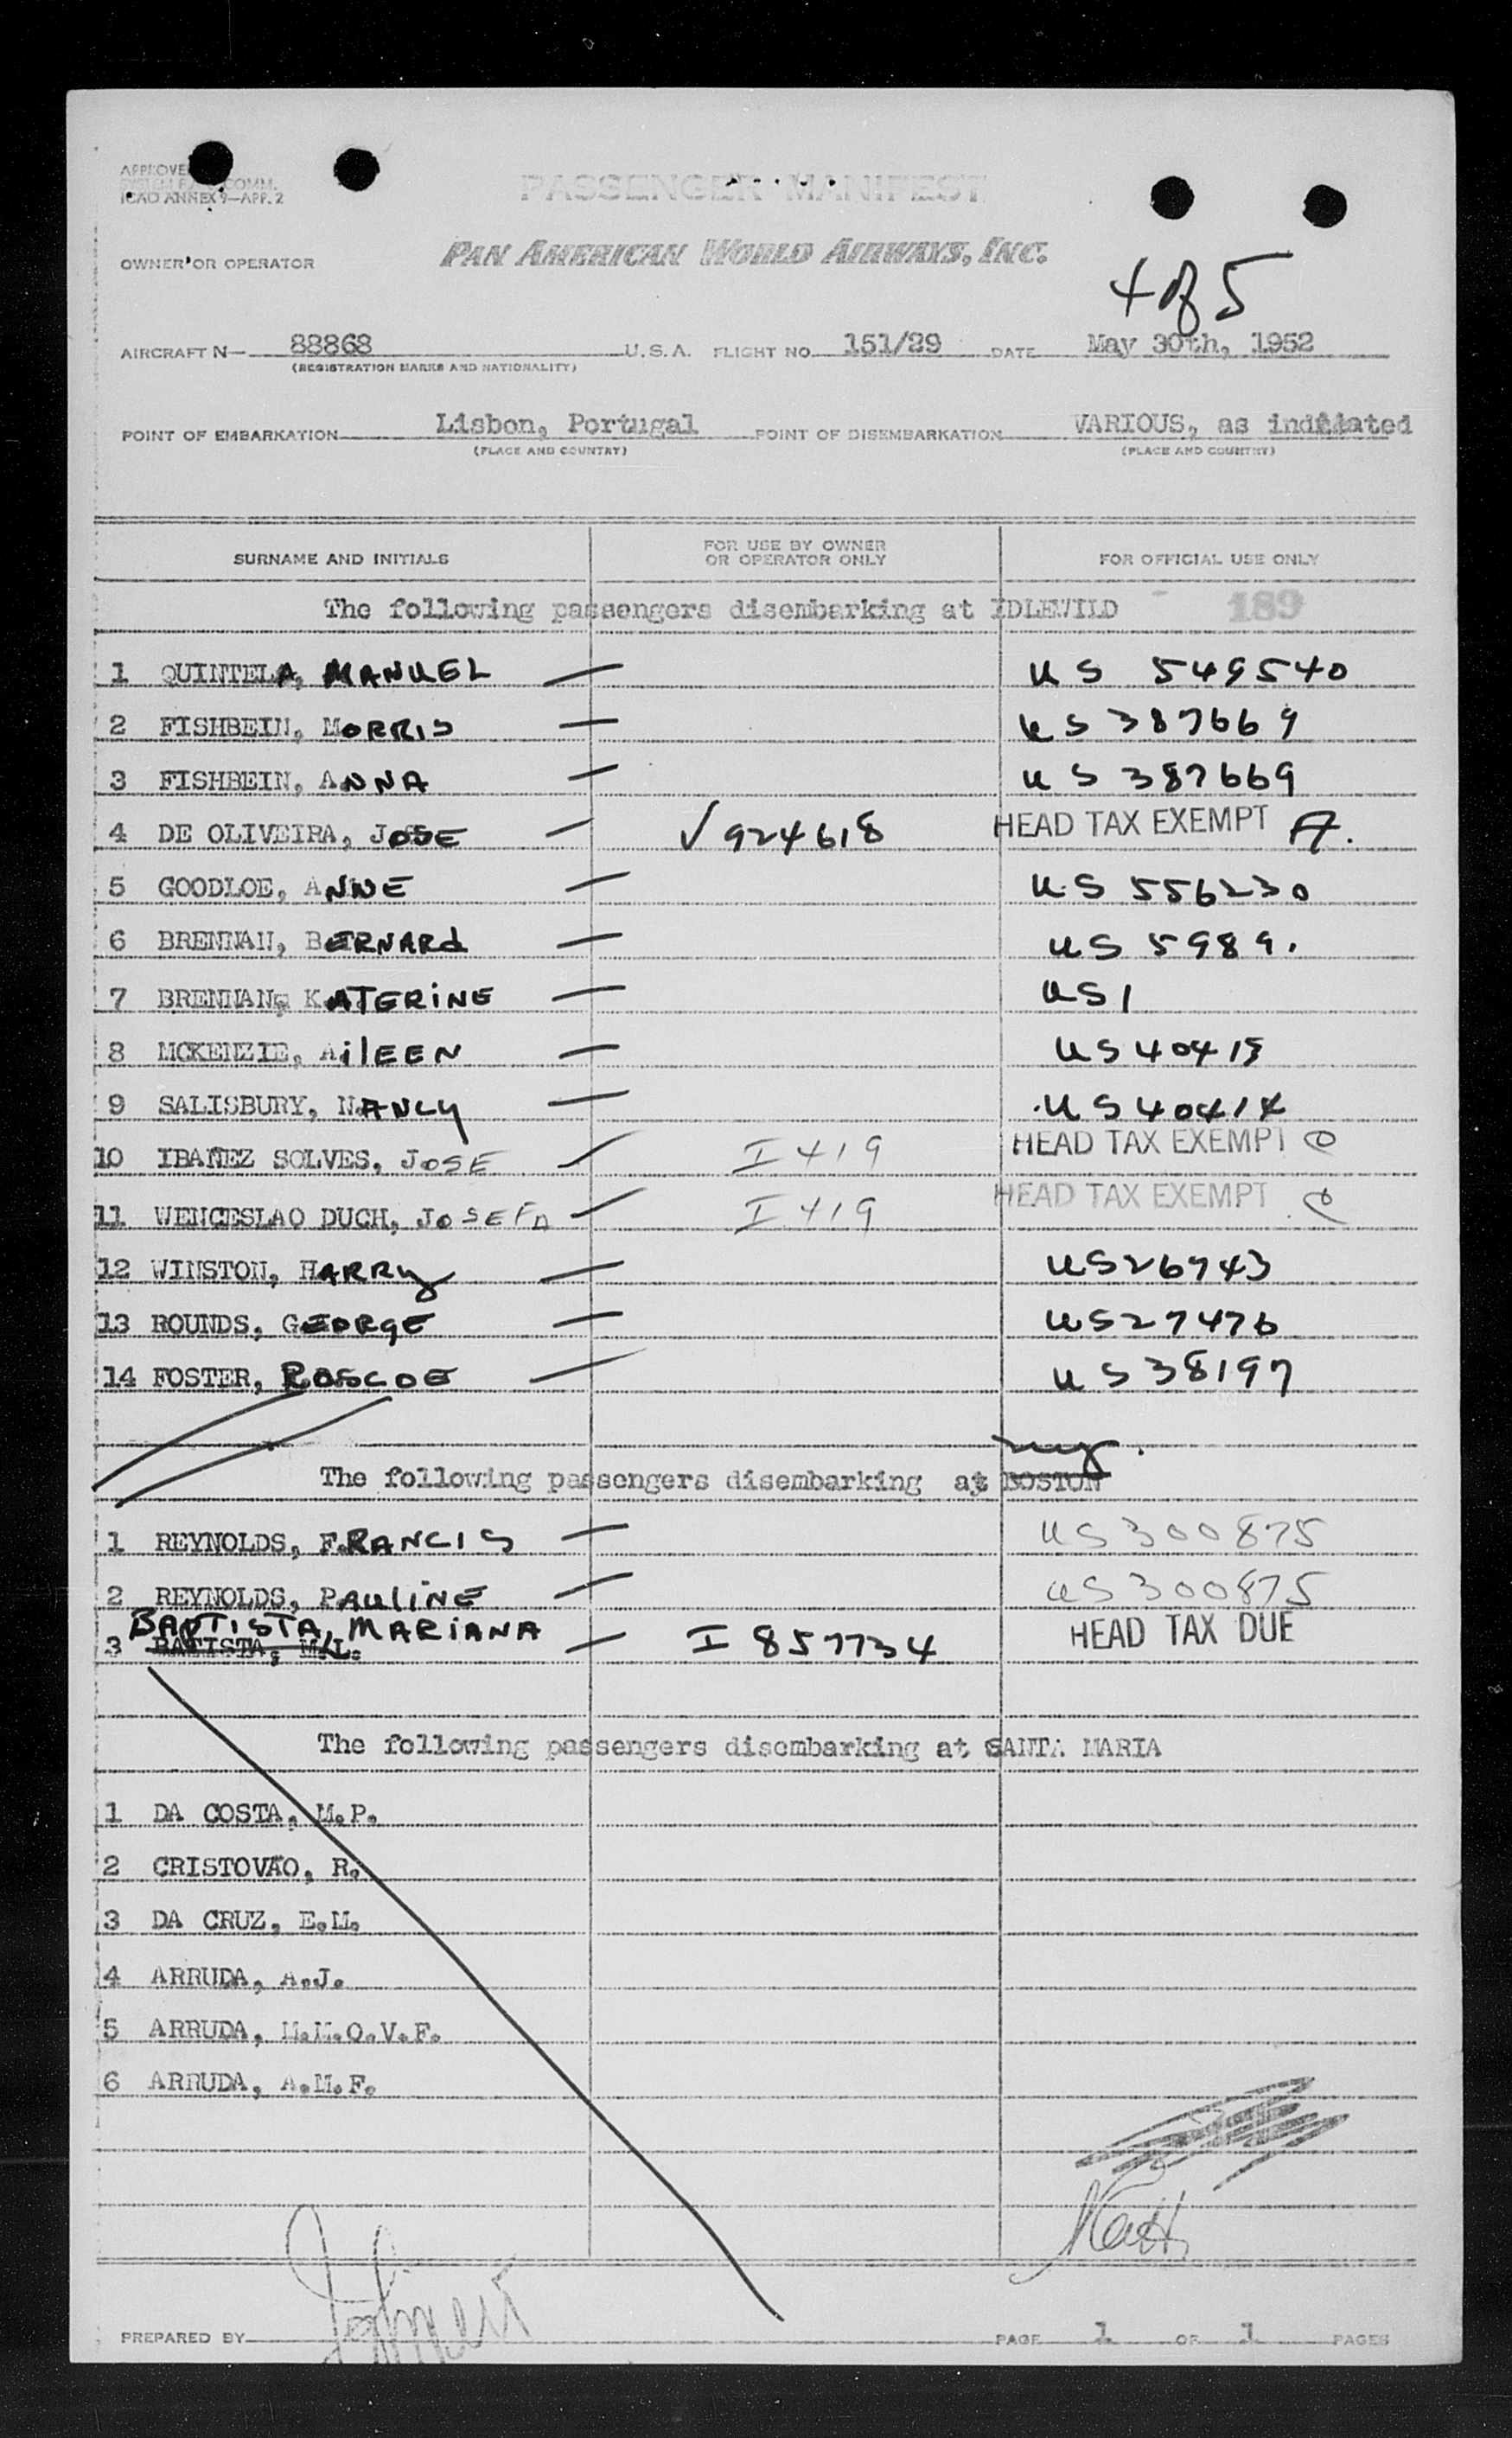 APPROVE
COMM.
ICAO ANNEX 9—APP. 2
PASSENGER MANIFEST
OWNER OR OPERATOR PAN AMERICAN WORLD AIRWAYS, INC.
4 of 5
AIRCRAFT N— 88868 U.S.A. FLIGHT NO. 151/29 DATE May 30th, 1952
(REGISTRATION MARKS AND NATIONALITY)
POINT OF EMBARKATION Lisbon, Portugal POINT OF DISEMBARKATION VARIOUS, as indicated
(PLACE AND COUNTRY) (PLACE AND COUNTRY)
SURNAME AND INITIALS FOR USE BY OWNER OR OPERATOR ONLY FOR OFFICIAL USE ONLY
The following passengers disembarking at IDLEWILD 189
1 QUINTELA, MANUEL — US 549540
2 FISHBEIN, MORRIS — US 387669
3 FISHBEIN, ANNA — US 387669
4 DE OLIVEIRA, JOSE — √ 924618 HEAD TAX EXEMPT A.
5 GOODLOE, ANNE — US 556230
6 BRENNAN, BERNARd — US 5989.
7 BRENNAN, KATERINE — US 1
8 MCKENZIE, AilEEN — US 40415
9 SALISBURY, NANCy — US 40414
10 IBAÑEZ SOLVES, JOSE I 419 HEAD TAX EXEMPT
11 WENCESLAO DUCH, JOSEFA I 419 HEAD TAX EXEMPT
12 WINSTON, HARRy — US 26743
13 ROUNDS, GEORgE — US 27476
14 FOSTER, ROSCOE — US 38197
ny.
The following passengers disembarking at BOSTON
1 REYNOLDS, FRANCIS — US 300875
2 REYNOLDS, PAULiNE — US 300875
BAPTISTA, MARiANA
3 BATISTA, M.L. — I 857734 HEAD TAX DUE
The following passengers disembarking at SANTA MARIA
1 DA COSTA, M.P.
2 CRISTOVÃO, R.
3 DA CRUZ, E.M.
4 ARRUDA, A.J.
5 ARRUDA, M.M.O.V.F.
6 ARRUDA, A.M.F.
PREPARED BY PAGE 1 OF 1 PAGES